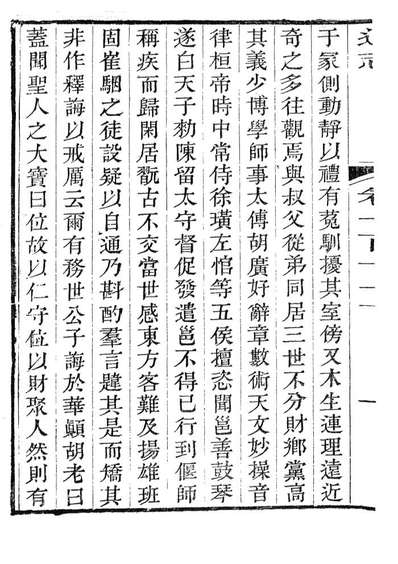 于冢側動靜以禮有菟馴擾其室傍又木生連理遠近
奇之多往觀焉與叔父從弟同居三世不分財鄉黨高
其義少博學師事太傅胡廣好辭章數術天文妙操音
律桓帝時中常侍徐璜左悺等五侯擅恣聞邕善鼓琴
遂白天子勑陳留太守督促發遣邕不得已行到偃師
稱疾而歸閑居翫古不交當世感東方客難及揚雄班
固崔駰之徒設疑以自通乃斟酌羣言韙其是而矯其
非作釋誨以戒厲云爾有務世公子誨於華顛胡老曰
蓋聞聖人之大寶曰位故以仁守位以財聚人然則有